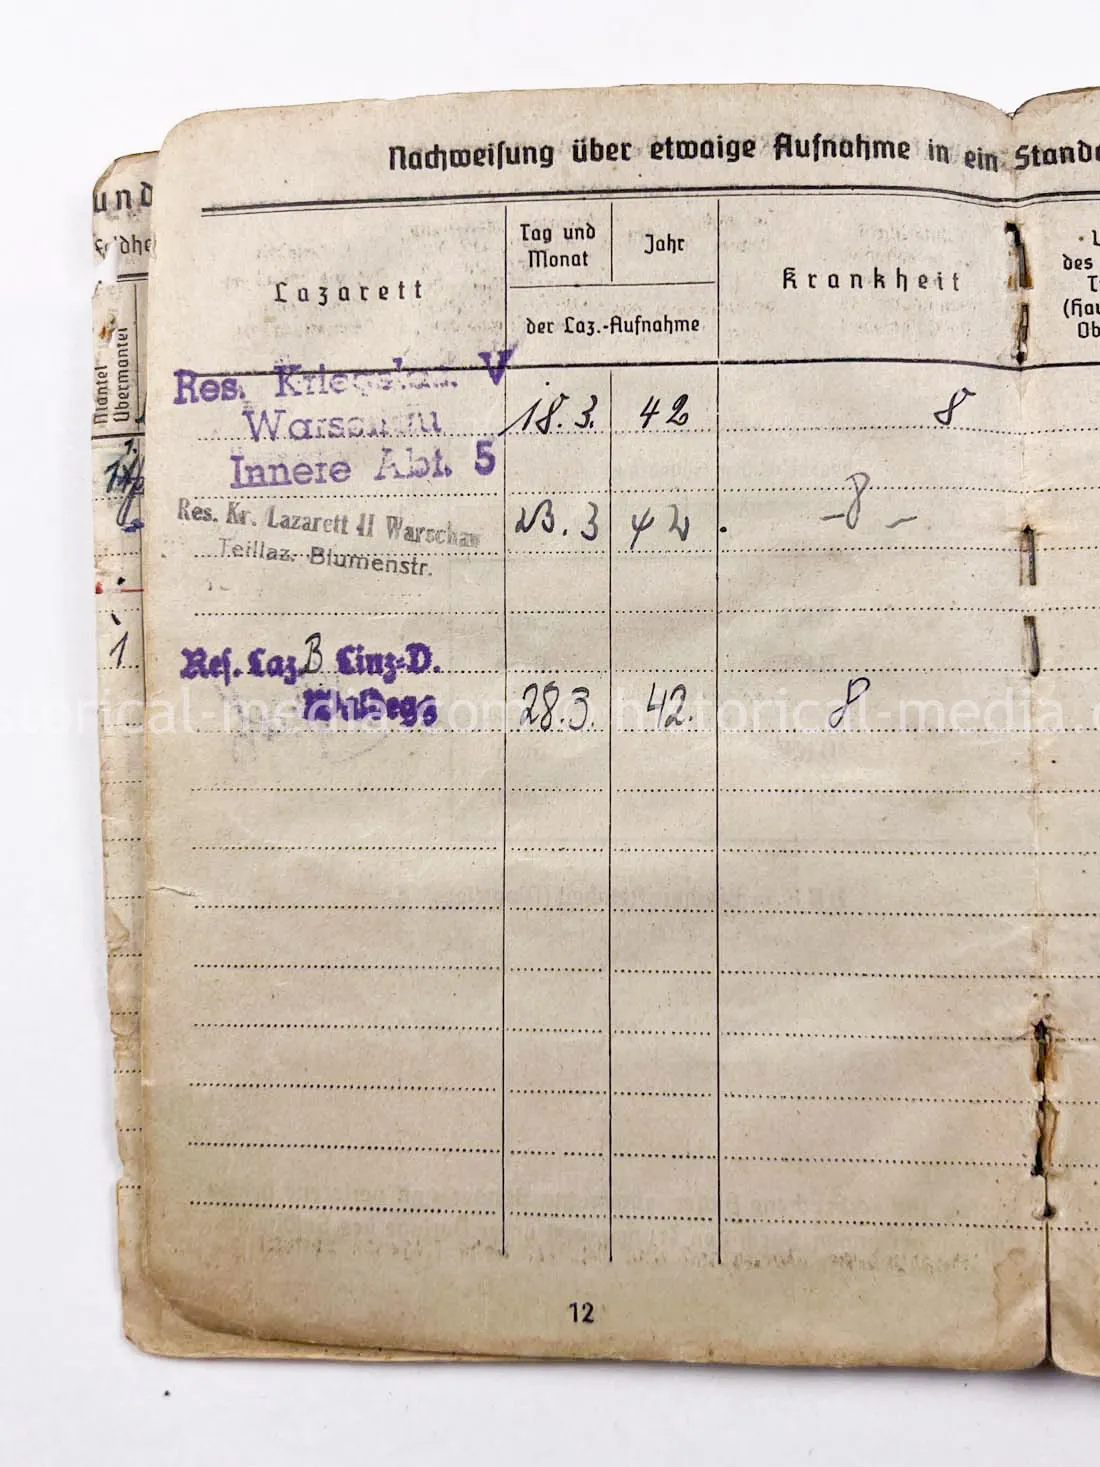 Nachweisung über etwaige Aufnahme in ein Stand
und
Mantel
Übermantel
Lazarett
Tag und Monat
Jahr
der Laz.-Aufnahme
Krankheit
des
Res. Kriegslaz. V
Warschau
Innere Abt. 5
18.3. 42 8
Res. Kr. Lazarett II Warschau
Teillaz. Blumenstr.
23.3 42. -8-
Res. Laz. B Linz-D.
28.3. 42. 8
historical-media.com
historical-media.
1
12